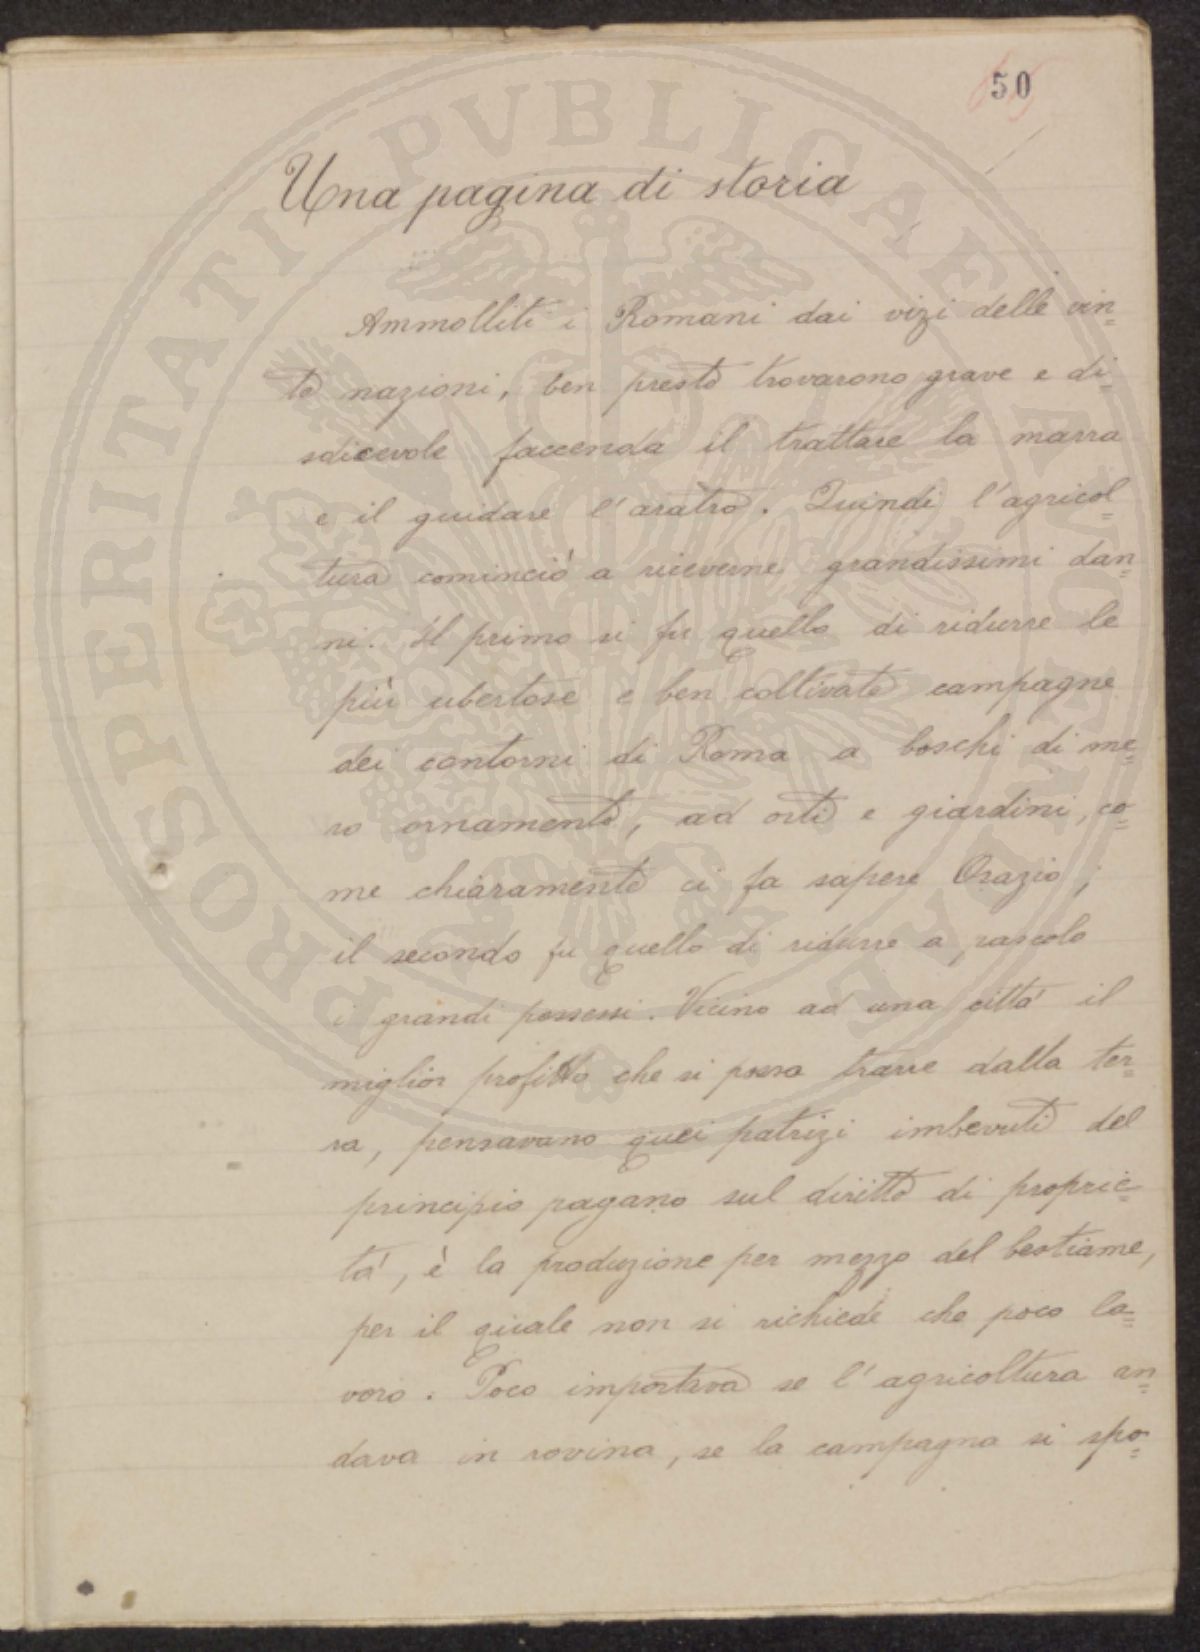 50
Una pagina di storia
Ammolliti i Romani dai vizi delle vin=
te nazioni, ben presto trovarono grave e di=
sdicevole faccenda il trattare la marra
e il guidare l'aratro. Quindi l'agricol=
tura cominciò a riceverne grandissimi dan=
ni. Il primo si fu quello di ridurre le
più ubertose e ben coltivate campagne
dei contorni di Roma a boschi di me=
ro ornamento, ad orti e giardini, co=
me chiaramente ci fa sapere Orazio;
il secondo fu quello di ridurre a pascolo
i grandi possessi. Vicino ad una città il
miglior profitto che si possa trarre dalla ter=
ra, pensavano quei patrizi imbevuti del
principio pagano sul diritto di proprie=
tà, è la produzione per mezzo del bestiame,
per il quale non si richiede che poco la=
voro. Poco importava se l'agricoltura an=
dava in rovina, se la campagna si spo=
PROSPERITATI PVBLICAE AVGENDAE